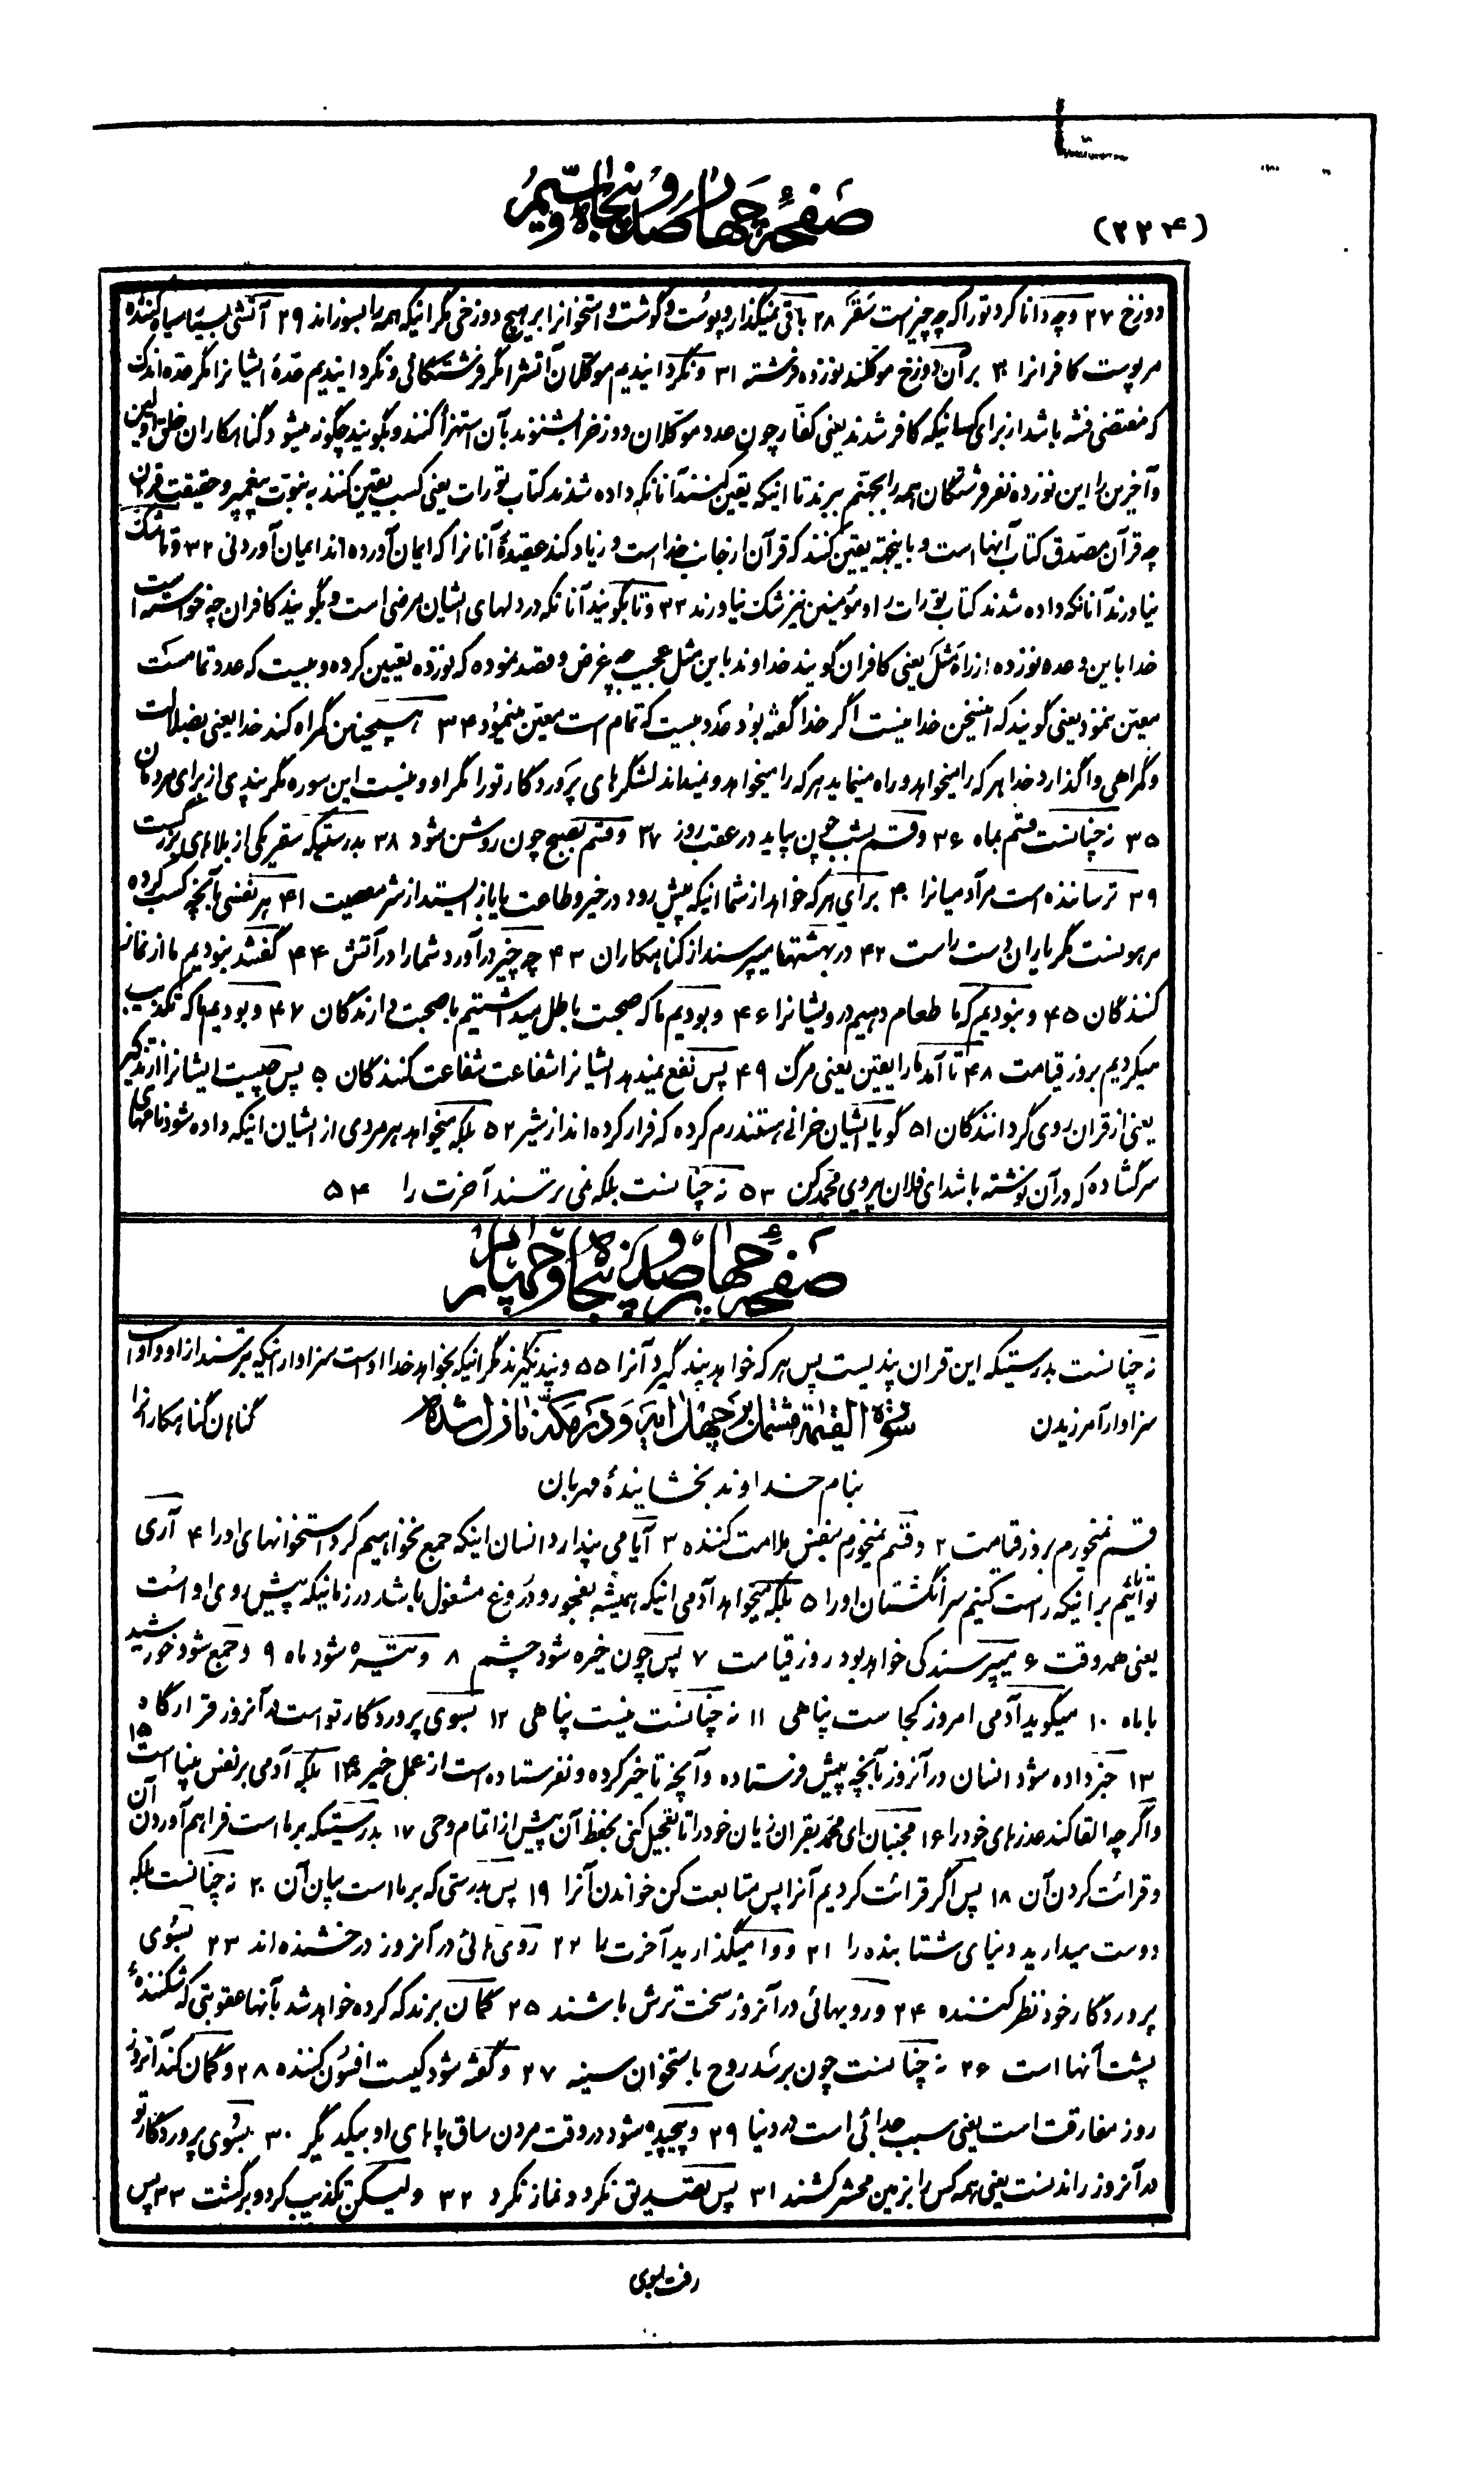 (۲۲۴)
صفحهٔ چهارصد و پنجاه و سیم
دوزخ ۲۷ و چه دانا کرد تو را که چه چیز است سَقَرَ ۲۸ باقی نمیگذارد پوست و گوشت و استخوانرا بر هیچ دوزخی مگر اینکه همه را بسوزاند ۲۹ آتشی بسیار سیاه کننده
مر پوست کافرانرا ۳۰ بر آن دوزخ موکلند نوزده فرشته ۳۱ و نگردانیدیم موکلان آتشرا مگر فرشتگانی و نگردانیدیم عدّهٔ ایشانرا مگر عدّه اندک
که مقتضی فتنه باشد از برای کسانیکه کافر شدند یعنی کفّار چون عدد موکلان دوزخرا بشنوند بآن استهزأ کنند و بگویند چگونه میشود گناهکاران خلق اولین
و آخرین را این نوزده نفر فرشتگان همه را بجهنم ببرند تا اینکه یقین کنند آنانکه داده شدند کتاب تورات یعنی کسب یقین کنند به نبوّت پیغمبر و حقیقت قرآن
چه قرآن مصدق کتاب آنها است و باینجهة یقین کنند که قرآن از جانب خدا است و زیاد کند عقیدهٔ آنانرا که ایمان آورده اند ایمان آوردنی ۳۲ و تا شک
نیاورند آنانکه داده شدند کتاب تورات را و مؤمنین نیز شک نیاورند ۳۳ و تا بگویند آنانکه در دلهای ایشان مرضی است و بگویند کافران چه خواسته است
خدا باین وعده نوزده از راه مَثَل یعنی کافران گویند خداوند باین مثل عجیب چه غرض و قصد نموده که نوزده تعیین کرده و بیست که عدد تمام است
معیّن ننمود یعنی گویند که اینسخن خدا نیست اگر خدا گفته بود عدد بیست که تمام است معیّن مینمود ۳۴ همچنین گمراه کند خدا یعنی بضلالت
و گمراهی واگذارد خدا هر که را میخواهد و راه مینماید هر که را میخواهد و نمیداند لشگرهای پروردگار تو را مگر او و نیست این سوره مگر پندی از برای مردمان
۳۵ نه چنانست قسم بماه ۳۶ و قسم بشب چون بیاید در عقب روز ۳۷ و قسم بصبح چون روشن شود ۳۸ بدرستیکه سقر یکی از بلاهای بزرگست
۳۹ ترساننده است مر آدمیانرا ۴۰ برای هر که خواهد از شما اینکه پیش رود در خیر و طاعت یا باز ایستد از شر معصیت ۴۱ هر نفسی بآنچه کسب کرده
مرهونست مگر یاران دست راست ۴۲ در بهشتها میپرسند از گناهکاران ۴۳ چه چیز درآورد شما را در آتش ۴۴ گفتند نبودیم ما از نماز
کنندگان ۴۵ و نبودیم که ما طعام دهیم درویشانرا ۴۶ و بودیم ما که صحبت باطل میداشتیم با صحبت دارندگان ۴۷ و بودیم ما که تکذیب
میکردیم بروز قیامت ۴۸ تا آمد ما را یقین یعنی مرگ ۴۹ پس نفع نمیدهد ایشانرا شفاعت شفاعت کنندگان ۵۰ پس چیست ایشانرا از تذکیر
یعنی از قران روی گردانندگان ۵۱ گویا ایشان خرانی هستند رم کرده که فرار کرده اند از شیر ۵۲ بلکه میخواهد هر مردی از ایشان اینکه داده شود نامهای
سرگشاده که در آن نوشته باشد ای فلان پیروی محمد کن ۵۳ نه چنانست بلکه نمی ترسند آخرت را ۵۴
صفحهٔ چهارصد و پنجاه و چهارم
نه چنانست بدرستیکه این قران پندیست پس هر که خواهد پند گیرد آنرا ۵۵ و پند نگیرند مگر اینکه بخواهد خدا او است سزاوار اینکه بترسند از او و او است
سزاوار آمرزیدن گناهان گناهکارانرا
سورة القیٰمة مشتمل بر چهل آیه و در مکه نازل شده
بنام خداوند بخشایندهٔ مهربان
قسم نمیخورم بروز قیامت ۲ و قسم نمیخورم بنفس ملامت کننده ۳ آیا می پندارد انسان اینکه جمع نخواهیم کرد استخوانهای او را ۴ آری
توانائیم بر اینکه راست کنیم سر انگشتان او را ۵ بلکه میخواهد آدمی اینکه همیشه بفجور و دروغ مشغول باشد در زمانیکه پیش روی او است
یعنی همه وقت ۶ میپرسند کی خواهد بود روز قیامت ۷ پس چون خیره شود چشم ۸ و تیره شود ماه ۹ و جمع شود خورشید
با ماه ۱۰ میگوید آدمی امروز کجا ست پناهی ۱۱ نه چنانست نیست پناهی ۱۲ بسوی پروردگار تو است در آنروز قرارگاه
۱۳ خبر داده شود انسان در آنروز بآنچه پیش فرستاده و آنچه تاخیر کرده و نفرستاده است از عمل خیر ۱۴ بلکه آدمی بر نفس بینا است ۱۵
و اگرچه القا کند عذرهای خود را ۱۶ مجنبان ای محمد بقران زبان خود را تا تعجیل کنی بحفظ آن پیش از اتمام وحی ۱۷ بدرستیکه بر ما است فراهم آوردن آن
و قرائت کردن آن ۱۸ پس اگر قرائت کردیم آنرا پس متابعت کن خواندن آنرا ۱۹ پس بدرستی که بر ما است بیان آن ۲۰ نه چنانست بلکه
دوست میدارید دنیای شتابنده را ۲۱ و وا میگذارید آخرت را ۲۲ روی هائی در آنروز درخشنده اند ۲۳ بسوی
پروردگار خود نظر کننده ۲۴ و رویهائی در آنروز سخت ترش باشند ۲۵ گمان برند که کرده خواهد شد بآنها عقوبتی که شکنندهٔ
پشت آنها است ۲۶ نه چنانست چون برسد روح باستخوان سینه ۲۷ و گفته شود کیست افسون کننده ۲۸ و گمان کند آنروز
روز مفارقت است یعنی سبب جدائی است در دنیا ۲۹ و پیچیده شود در وقت مردن ساق پاهای او بیکدیگر ۳۰ بسوی پروردگار تو
در آنروز راندنست یعنی همه کس را بزمین محشر کشند ۳۱ پس تصدیق نکرد و نماز نکرد ۳۲ ولیکن تکذیب کرد و برگشت ۳۳ پس
رفت بسوی